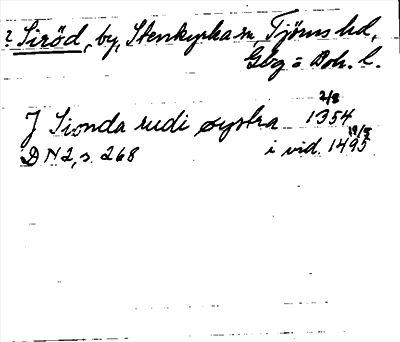 ? Siröd, by, Stenkyrka sn, Tjörns hd,
Gbg o Boh. l.
J Sionda rudi øystra 1354 2/8
DN 2, s. 268 i vid. 1495 19/5